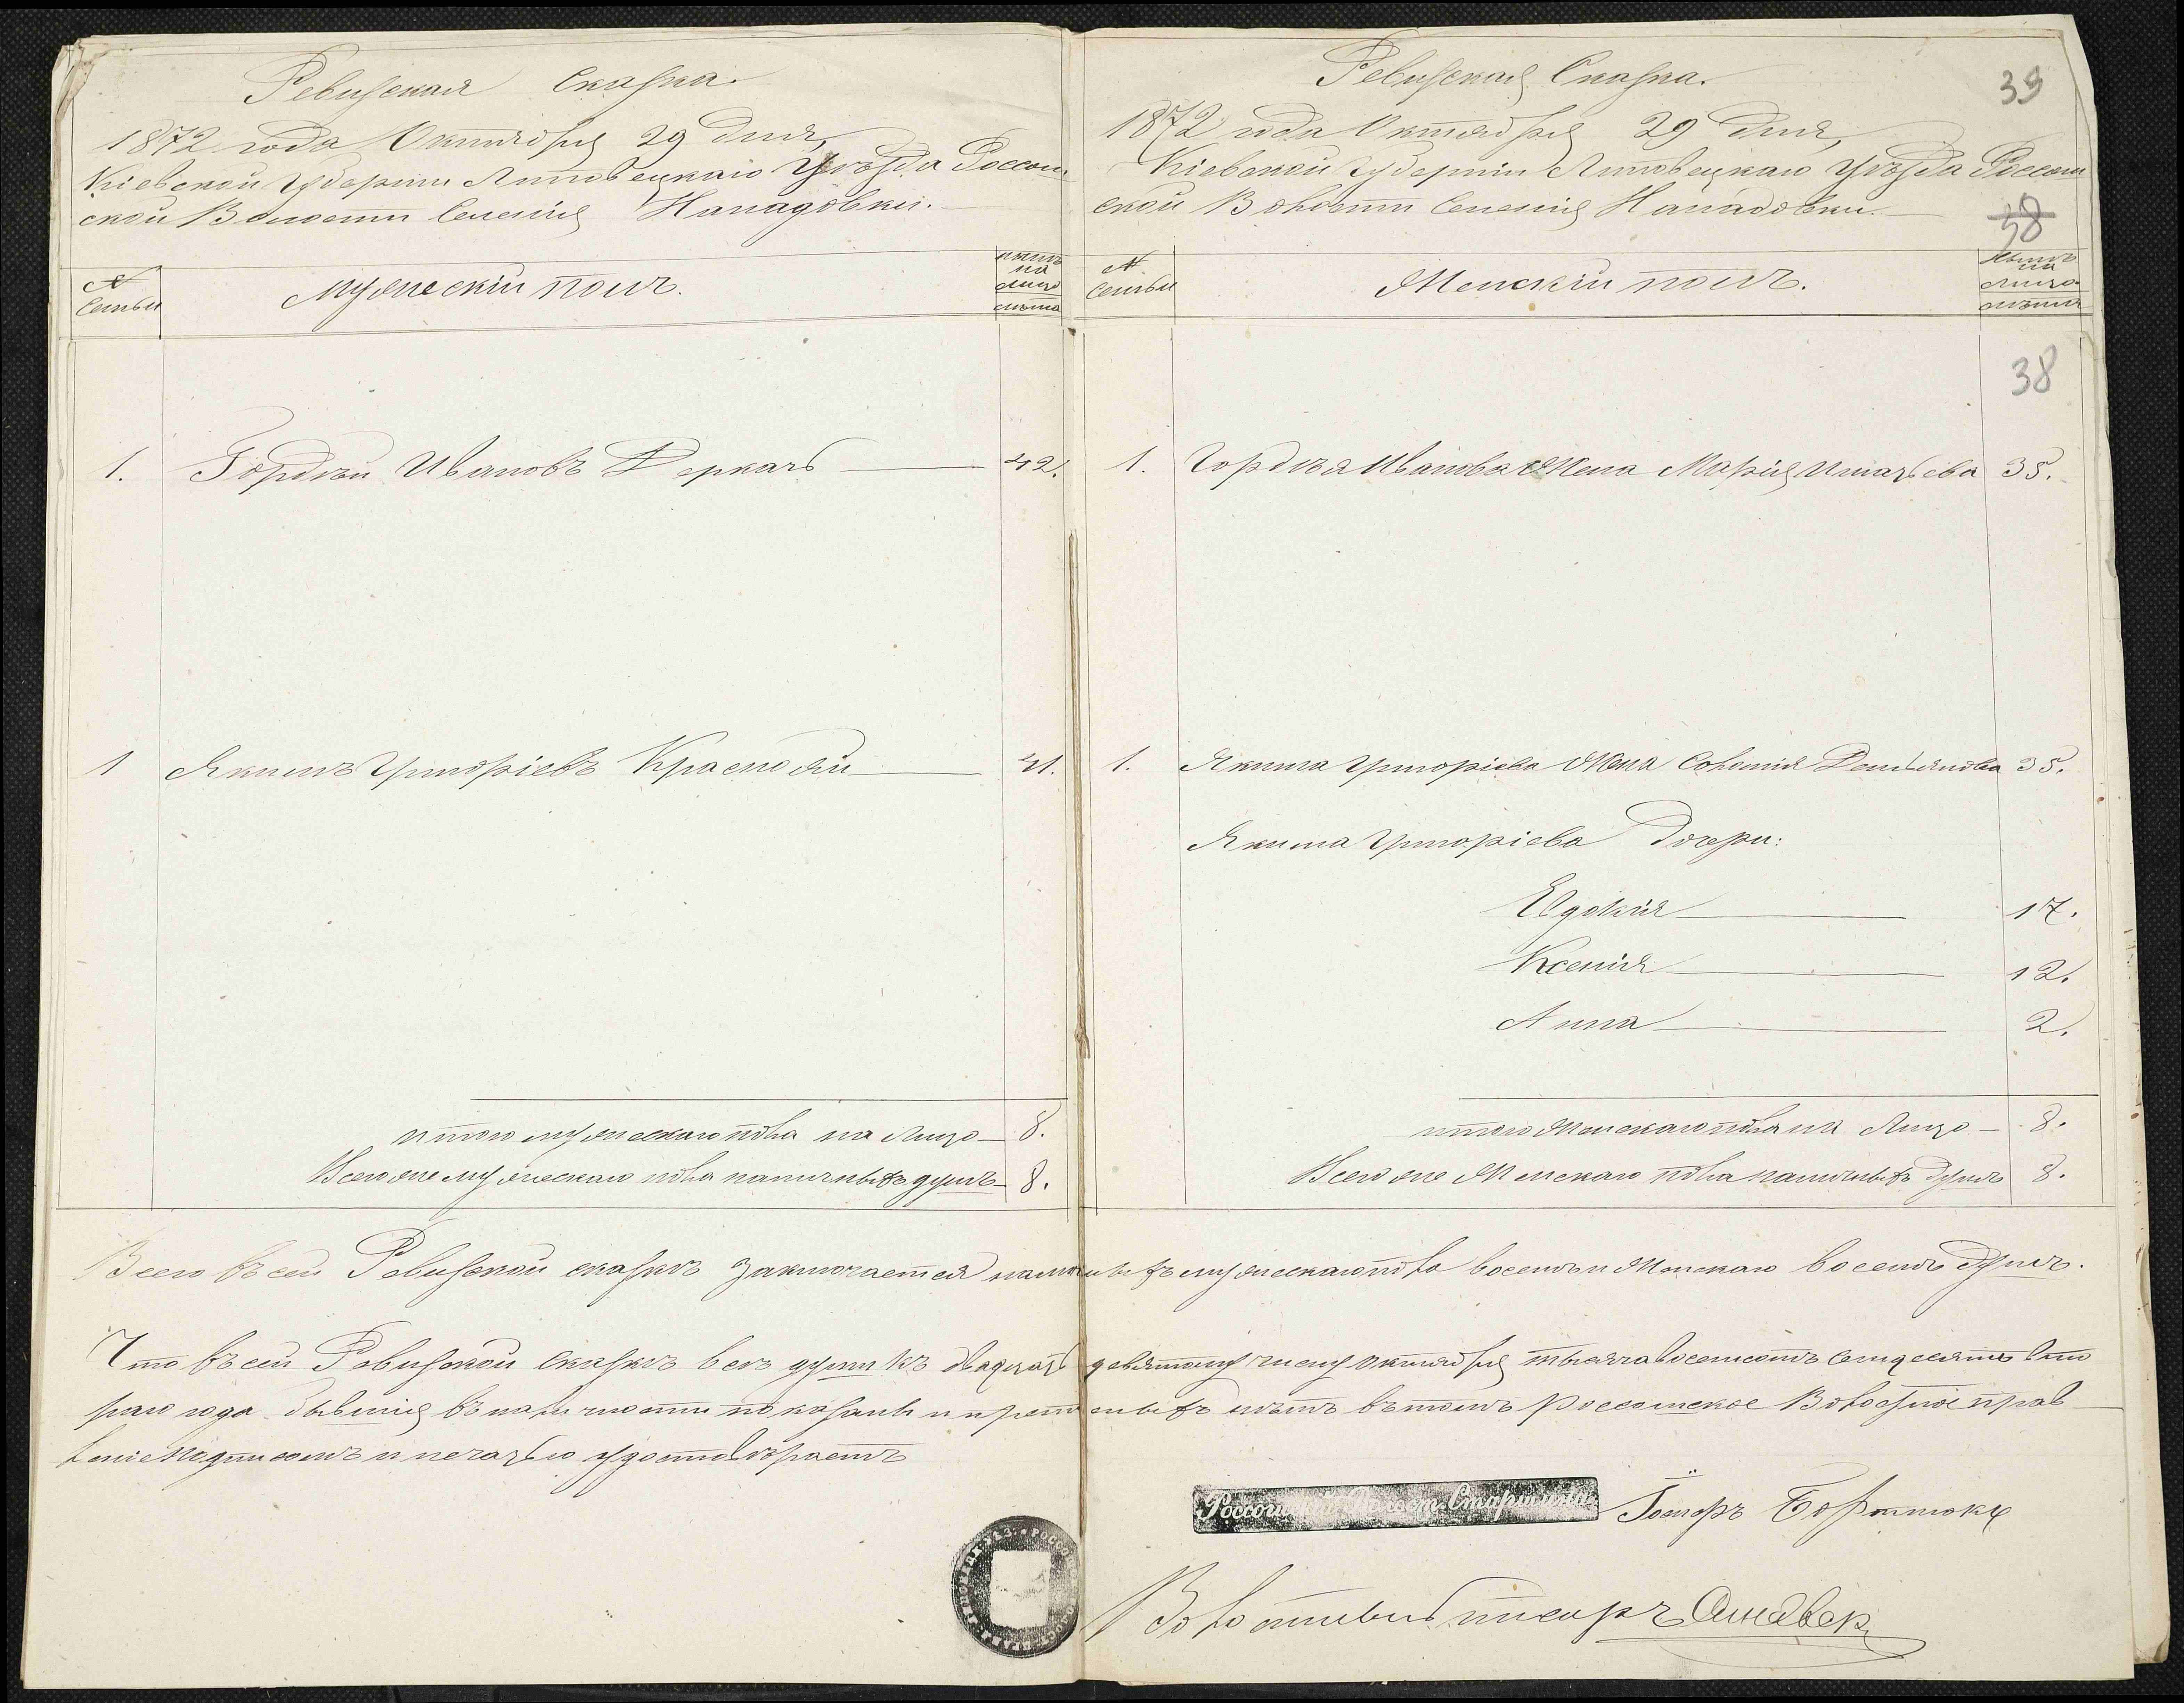 Ревизская Сказка.
1872 года Октября 29 дня,
Кіевской Губерніи Липовецкаго Уѣзда Россош-
ской Волости Селенія Нападовки.
№ Семьи
Мужескій полъ.
нынѣ на лицо лѣта
1. Гордѣй Ивановъ Деркачь 42.
1 Якимъ Григоріевъ Красножон 41.
итого мужескаго пола на лицо 8.
Всего же мужескаго пола наличныхъ душъ 8.
39
Ревизская Сказка.
1872 года Октября 29 дня,
Кіевской Губерніи Липовецкаго Уѣзда Россош
ской Волости Селенія Нападовки.
38
№ Семьи
Женскій полъ.
нынѣ на лицо лѣта
38
1. Гордѣя Иванова Жена Марія Игнатьева 35.
1. Якима Григоріева Жена Соломія Демьянова 35.
Якима Григоріева дочери:
Евдокія 17.
Ксенія 12.
Анна 2.
итого Женскаго пола на лицо 8.
Всего же Женскаго пола наличныхъ душъ 8.
Всего въ сей Ревизской сказкѣ заключается наличныхъ мужескаго пола восемь и Женскаго восемь душъ.
Что въ сей Ревизской сказкѣ всѣ души къ двадцать девятому числу Октября тысяча восемсотъ семдесятъ вто
раго года бывшія въ наличности показаны и прописныхъ нѣтъ въ томъ Россошское Волостное прав
леніе подписомъ и печатью удостовѣряетъ
Россошскій Волост. Старшина
Волостный писарь